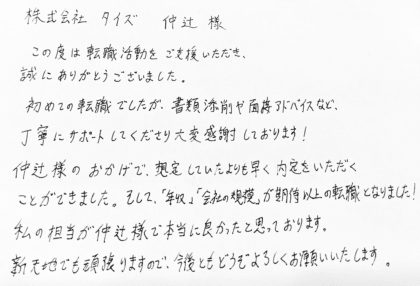 株式会社 タイズ 仲辻 様
この度は転職活動をご支援いただき、
誠にありがとうございました。
初めての転職でしたが、書類添削や面接アドバイスなど、
丁寧にサポートしてくださり大変感謝しております!
仲辻様のおかげで、想定していたよりも早く内定をいただく
ことができました。そして、「年収」「会社の規模」が期待以上の転職となりました!
私の担当が仲辻様で本当に良かったと思っております。
新天地でも頑張りますので、今後ともどうぞよろしくお願いいたします。